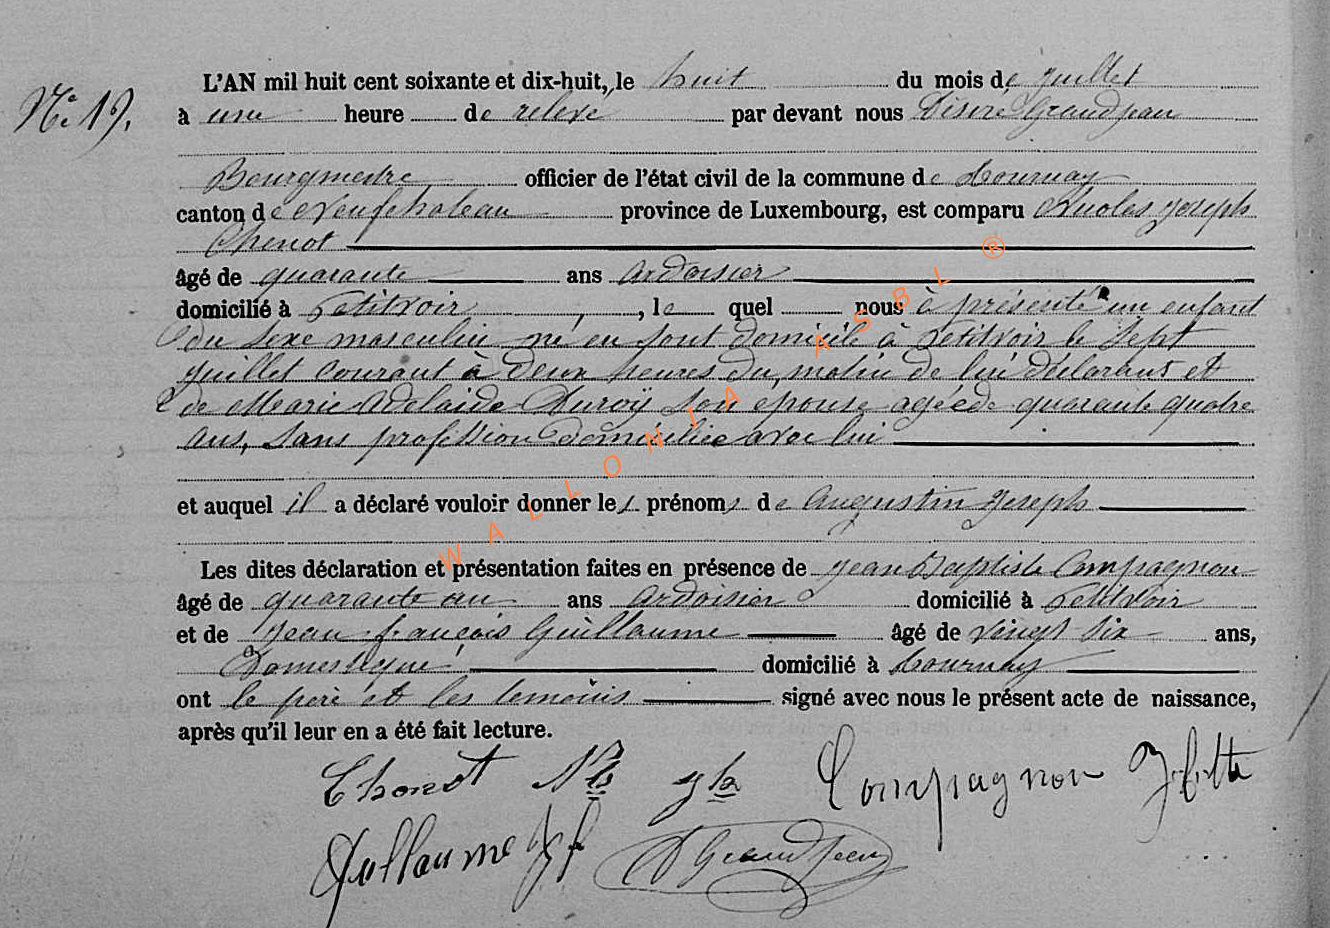 N° 19.
L'AN mil huit cent soixante et dix-huit, le huit du mois de juillet
à une heure de relevé par devant nous Désiré Grandjean
Bourgmestre officier de l'état civil de la commune de Tournay
canton de Neufchateau province de Luxembourg, est comparu Nicolas Joseph
Thenot
âgé de quarante ans Ardoisier
domicilié à Petitvoir, le quel nous à présenté un enfant
du sexe masculin né en sont domicile à Petitvoir le Sept
juillet courant à deux heures du matin de lui déclarant et
de Marie Adelaide Duroÿ son épouse agée de quarante quatre
ans, sans profession domiciliée avec lui
et auquel il a déclaré vouloir donner les prénoms de Augustin Joseph
Les dites déclaration et présentation faites en présence de Jean Baptiste Compagnon
âgé de quarante un ans Ardoisier domicilié à Petitvoir
et de Jean françois Guillaume âgé de vingt six ans,
Domestique domicilié à Tournay
ont le père et les temoins signé avec nous le présent acte de naissance,
après qu'il leur en a été fait lecture.
Thonot Nls jh Compagnon J btte
Guillaume J f D Grandjean
WALLONIA ASBL ®